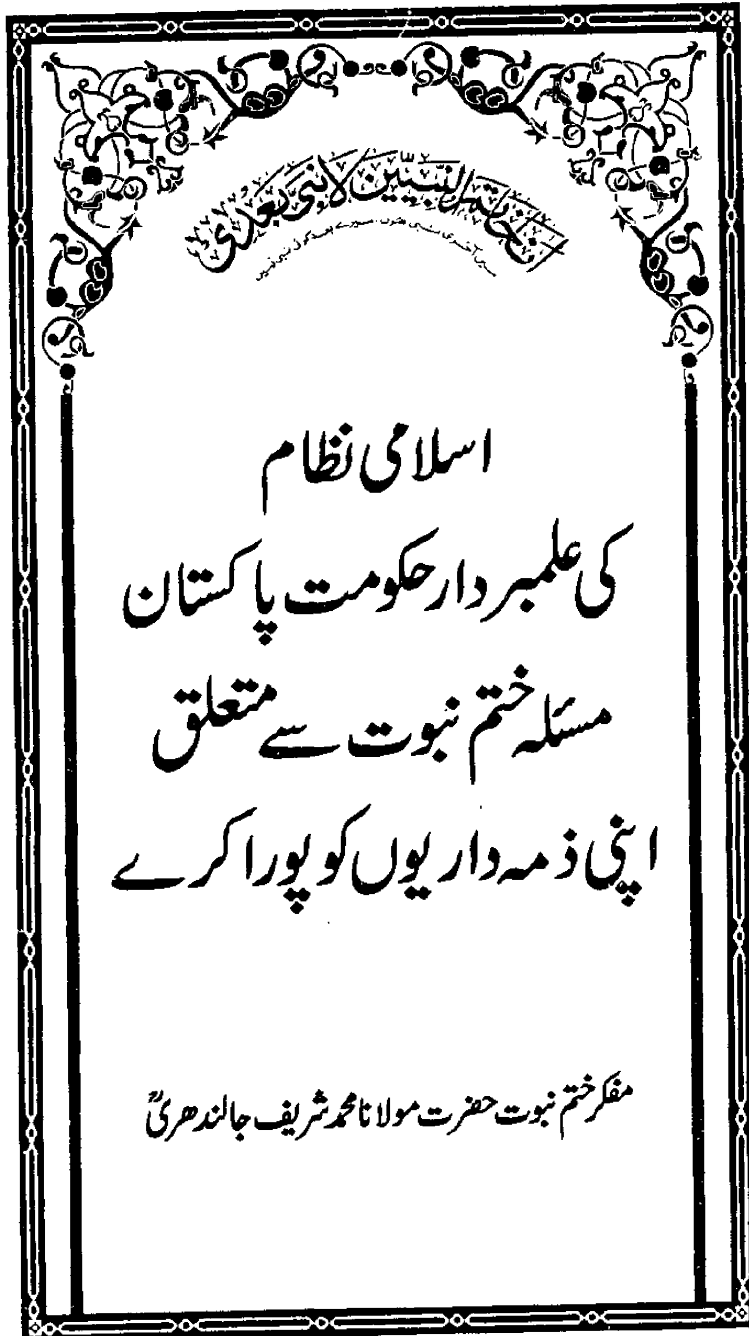 انا خاتم النبیین لا نبی بعدی
میں آخری نبی ہوں، میرے بعد کوئی نبی نہیں
اسلامی نظام
کی علمبردار حکومت پاکستان
مسئلہ ختم نبوت سے متعلق
اپنی ذمہ داریوں کو پورا کرے
مفکر ختم نبوت حضرت مولانا محمد شریف جالندھریؒ